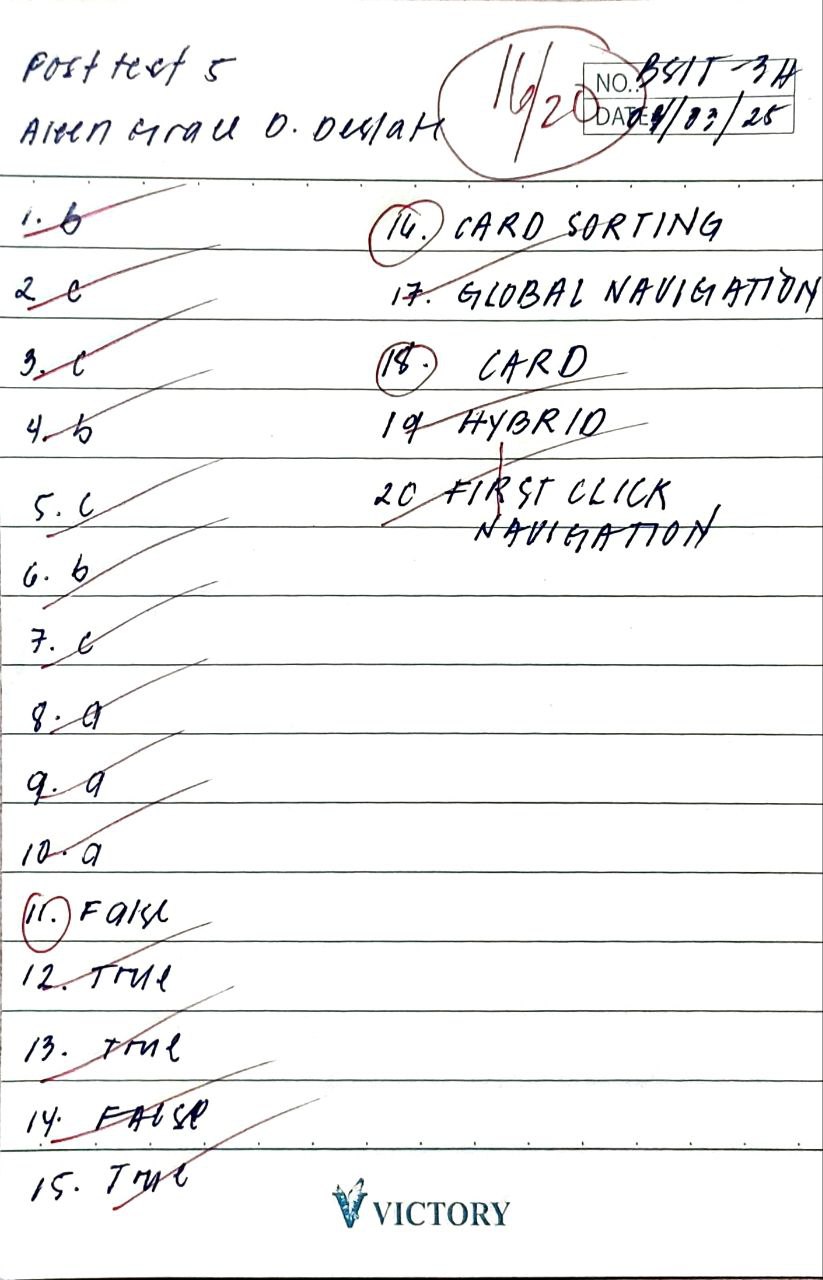 Post test 5
16/20
NO.: BSIT-3A
DATE /03/25
Grace D.
1. b
2 c
3. c
4. b
5. c
6. b
7. c
8. a
9. a
10. a
11. False
12. True
13. True
14. FALSE
15. True
16. CARD SORTING
17. GLOBAL NAVIGATION
18. CARD
19 HYBRID
20 FIRST CLICK
NAVIGATION
VICTORY